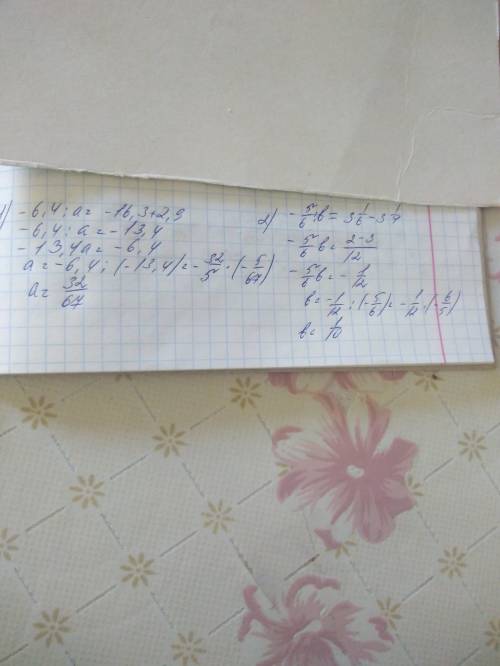 1) -6,4 : a = -16,3+2,9
-6,4 : a = -13,4
-13,4a = -6,4
a = -6,4 : (-13,4) = -32/5 · (-5/67)
a = 32/67
2) -5/6 : в = 3 1/6 - 3 1/4
-5/6 в = 2-3/12
-5/6 в = -1/12
в = -1/12 : (-5/6) = -1/12 · (-6/5)
в = 1/10